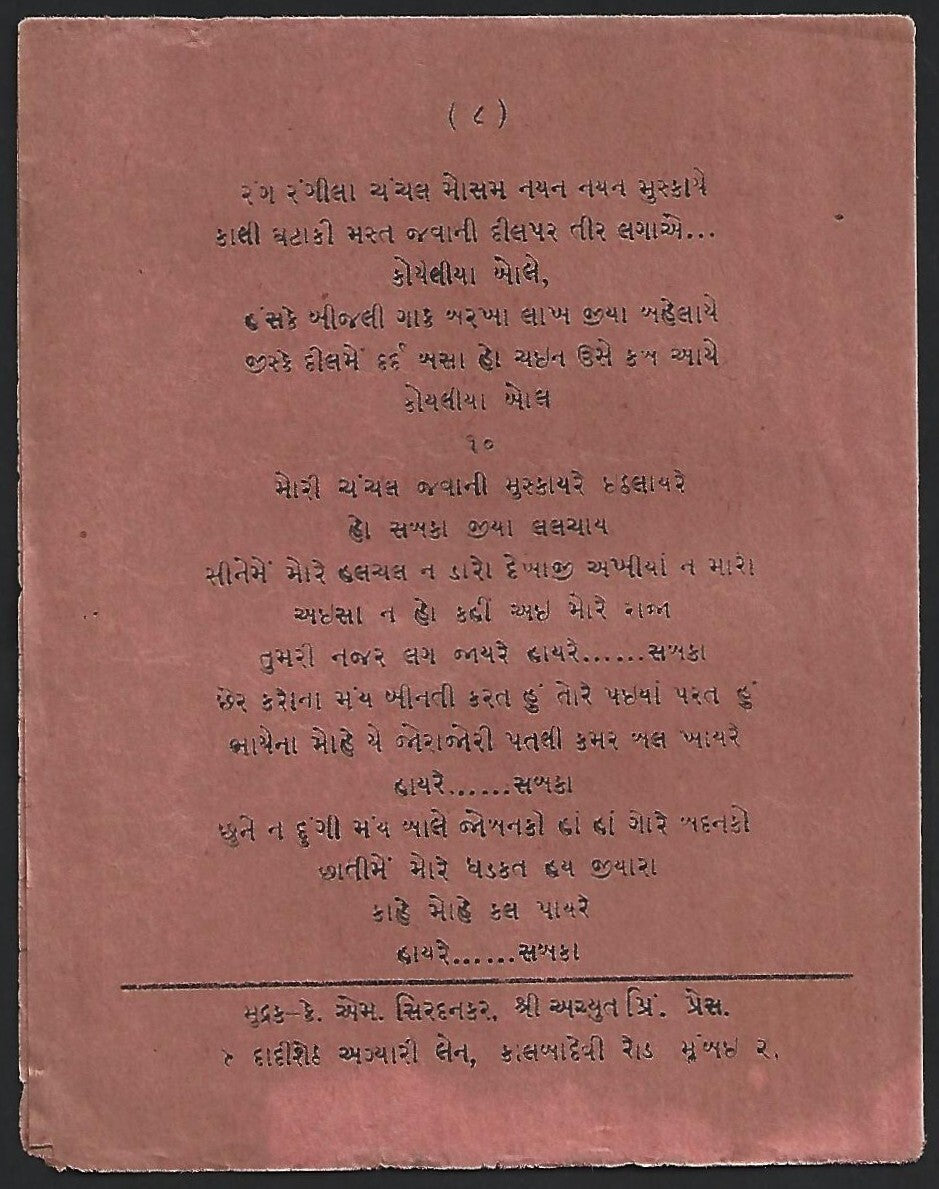 ( ૮ )
રંગ રંગીલા ચંચલ મોસમ નયન નયન મુસ્કાયે
કાલી ઘટાકી મસ્ત જવાની દીલપર તીર લગાએ...
કોયેલીયા બોલે,
હંસકે બીજલી ગાકે બરખા લાખ જીયા બહેલાયે
જીસ્કે દીલમેં દર્દ બસા હો ચઇન ઉસે કબ આયે
કોયલીયા બોલ
૧૦
મોરી ચંચલ જવાની મુસ્કાયરે ઇઠલાયરે
હો સબકા જીયા લલચાય
સીનેમેં મોરે હલચલ ન ડારો દેખાજી અખીયાં ન મારો
અઇસા ન હો કહીં અઇ મોરે રાજા
તુમરી નજર લગ જાયરે હાયરે......સબકા
છેર કરોના મંય બીનતી કરત હું તોરે પઇયાં પરત હું
ભાયેના મોહે યે જોરાજોરી પતલી કમર બલ ખાયરે
હાયરે......સબકા
છુને ન દુંગી મંય બાલે જોબનકો હાં હાં ગોરે બદનકો
છાતીમેં મોરે ધડકત હય જીયારા
કાહે મોહે કલ પાયરે
હાયરે......સબકા
મુદ્રક–કે. એમ. સિરદનકર, શ્રી અચ્યુત પ્રિં. પ્રેસ.
દાદીશેઠ અગ્યારી લેન, કાલબાદેવી રોડ મુંબઇ ૨.